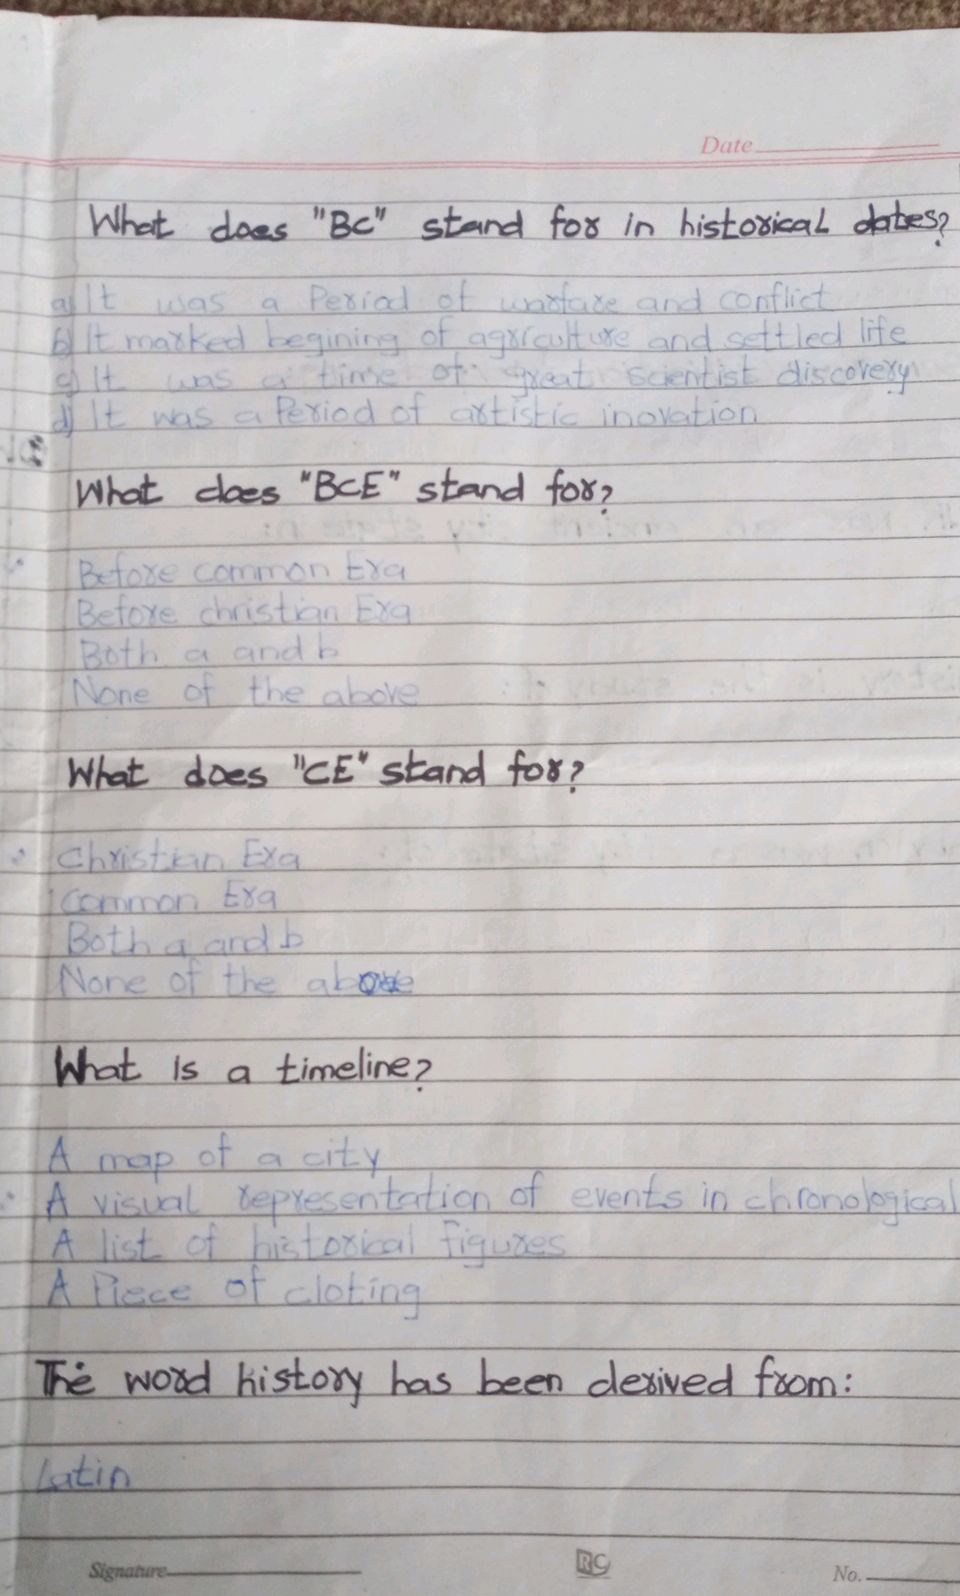 Date
What does "BC" stand for in historical dates?
a) It was a Period of warfare and conflict
b) It marked begining of agriculture and settled life
c) It was a time of great scientist discovery
d) It was a Period of artistic inovation
What does "BCE" stand for?
Before common Era
Before christian Era
Both a and b
None of the above
What does "CE" stand for?
Christian Era
Common Era
Both a and b
None of the above
What is a timeline?
A map of a city
A visual representation of events in chronological
A list of historical figures
A Piece of cloting
The word history has been derived from:
Latin
Signature
RC
No.